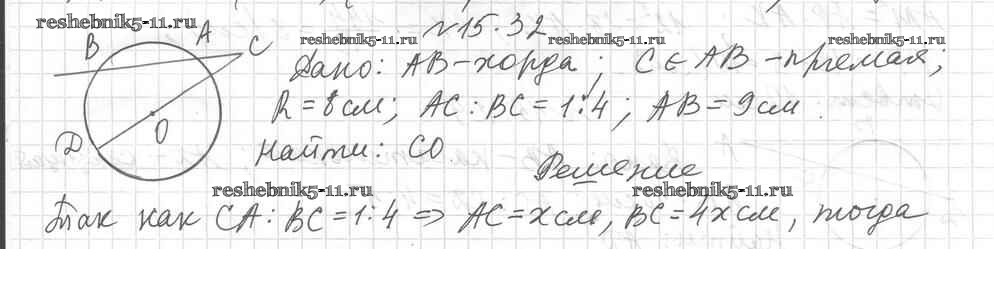 reshebnik5-11.ru
№15.32
reshebnik5-11.ru reshebnik5-11.ru reshebnik5-11.ru
B A C
Дано: AB-хорда; C ∈ AB -прямая;
R = 8 см; AC : BC = 1:4; AB = 9 см
D O
Найти: CO
Решение
reshebnik5-11.ru reshebnik5-11.ru
Так как CA : BC = 1:4 ⇒ AC = x см, BC = 4x см, тогда